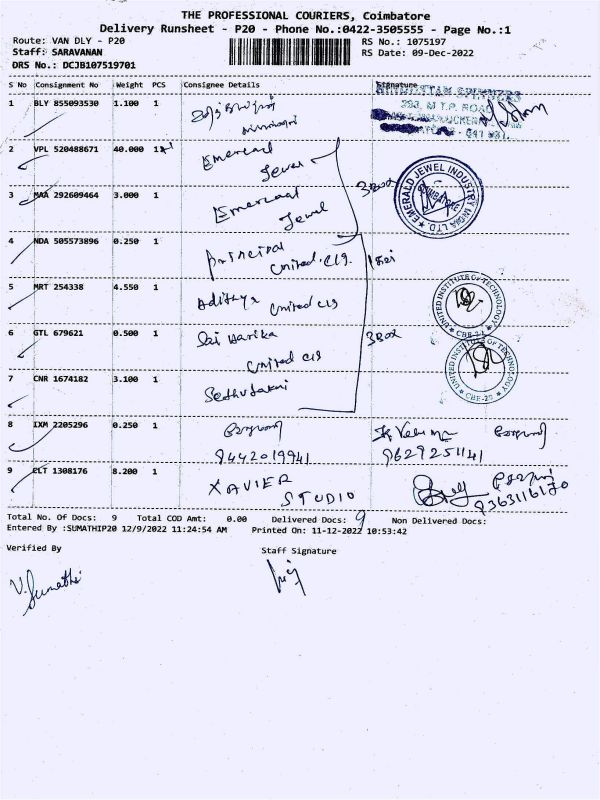 THE PROFESSIONAL COURIERS, Coimbatore
Delivery Runsheet - P20 - Phone No.:0422-3505555 - Page No.:1
Route: VAN DLY - P20
RS No.: 1075197
Staff: SARAVANAN
RS Date: 09-Dec-2022
DRS No.: DCJB107519701
S No Consignment No Weight PCS Consignee Details Signature
1 BLY 855093530 1.100 1
293, M.T.P. ROAD
2 VPL 520488671 40.000 1 Emerald
Jewel
3 MAA 292609464 3.000 1 Emerald
Jewel
3 Box
EMERALD JEWEL INDUSTRY INDIA LTD
COIMBATORE
4 NDA 505573896 0.250 1 Principal
United clg.
5 MRT 254338 4.550 1 Adithya United clg
UNITED INSTITUTE OF TECHNOLOGY
CBE-20
6 GTL 679621 0.500 1 Sai Harika
United clg
3 Box
UNITED INSTITUTE OF TECHNOLOGY
CBE-20
7 CNR 1674182 3.100 1
8 IXM 2205296 0.250 1
9442019941 9629251141
9 CLT 1308176 8.200 1 XAVIER
STUDIO
9363116170
Total No. Of Docs: 9 Total COD Amt: 0.00 Delivered Docs: 9 Non Delivered Docs:
Entered By :SUMATHIP20 12/9/2022 11:24:54 AM Printed On: 11-12-2022 10:53:42
Verified By Staff Signature
V. Sumathi